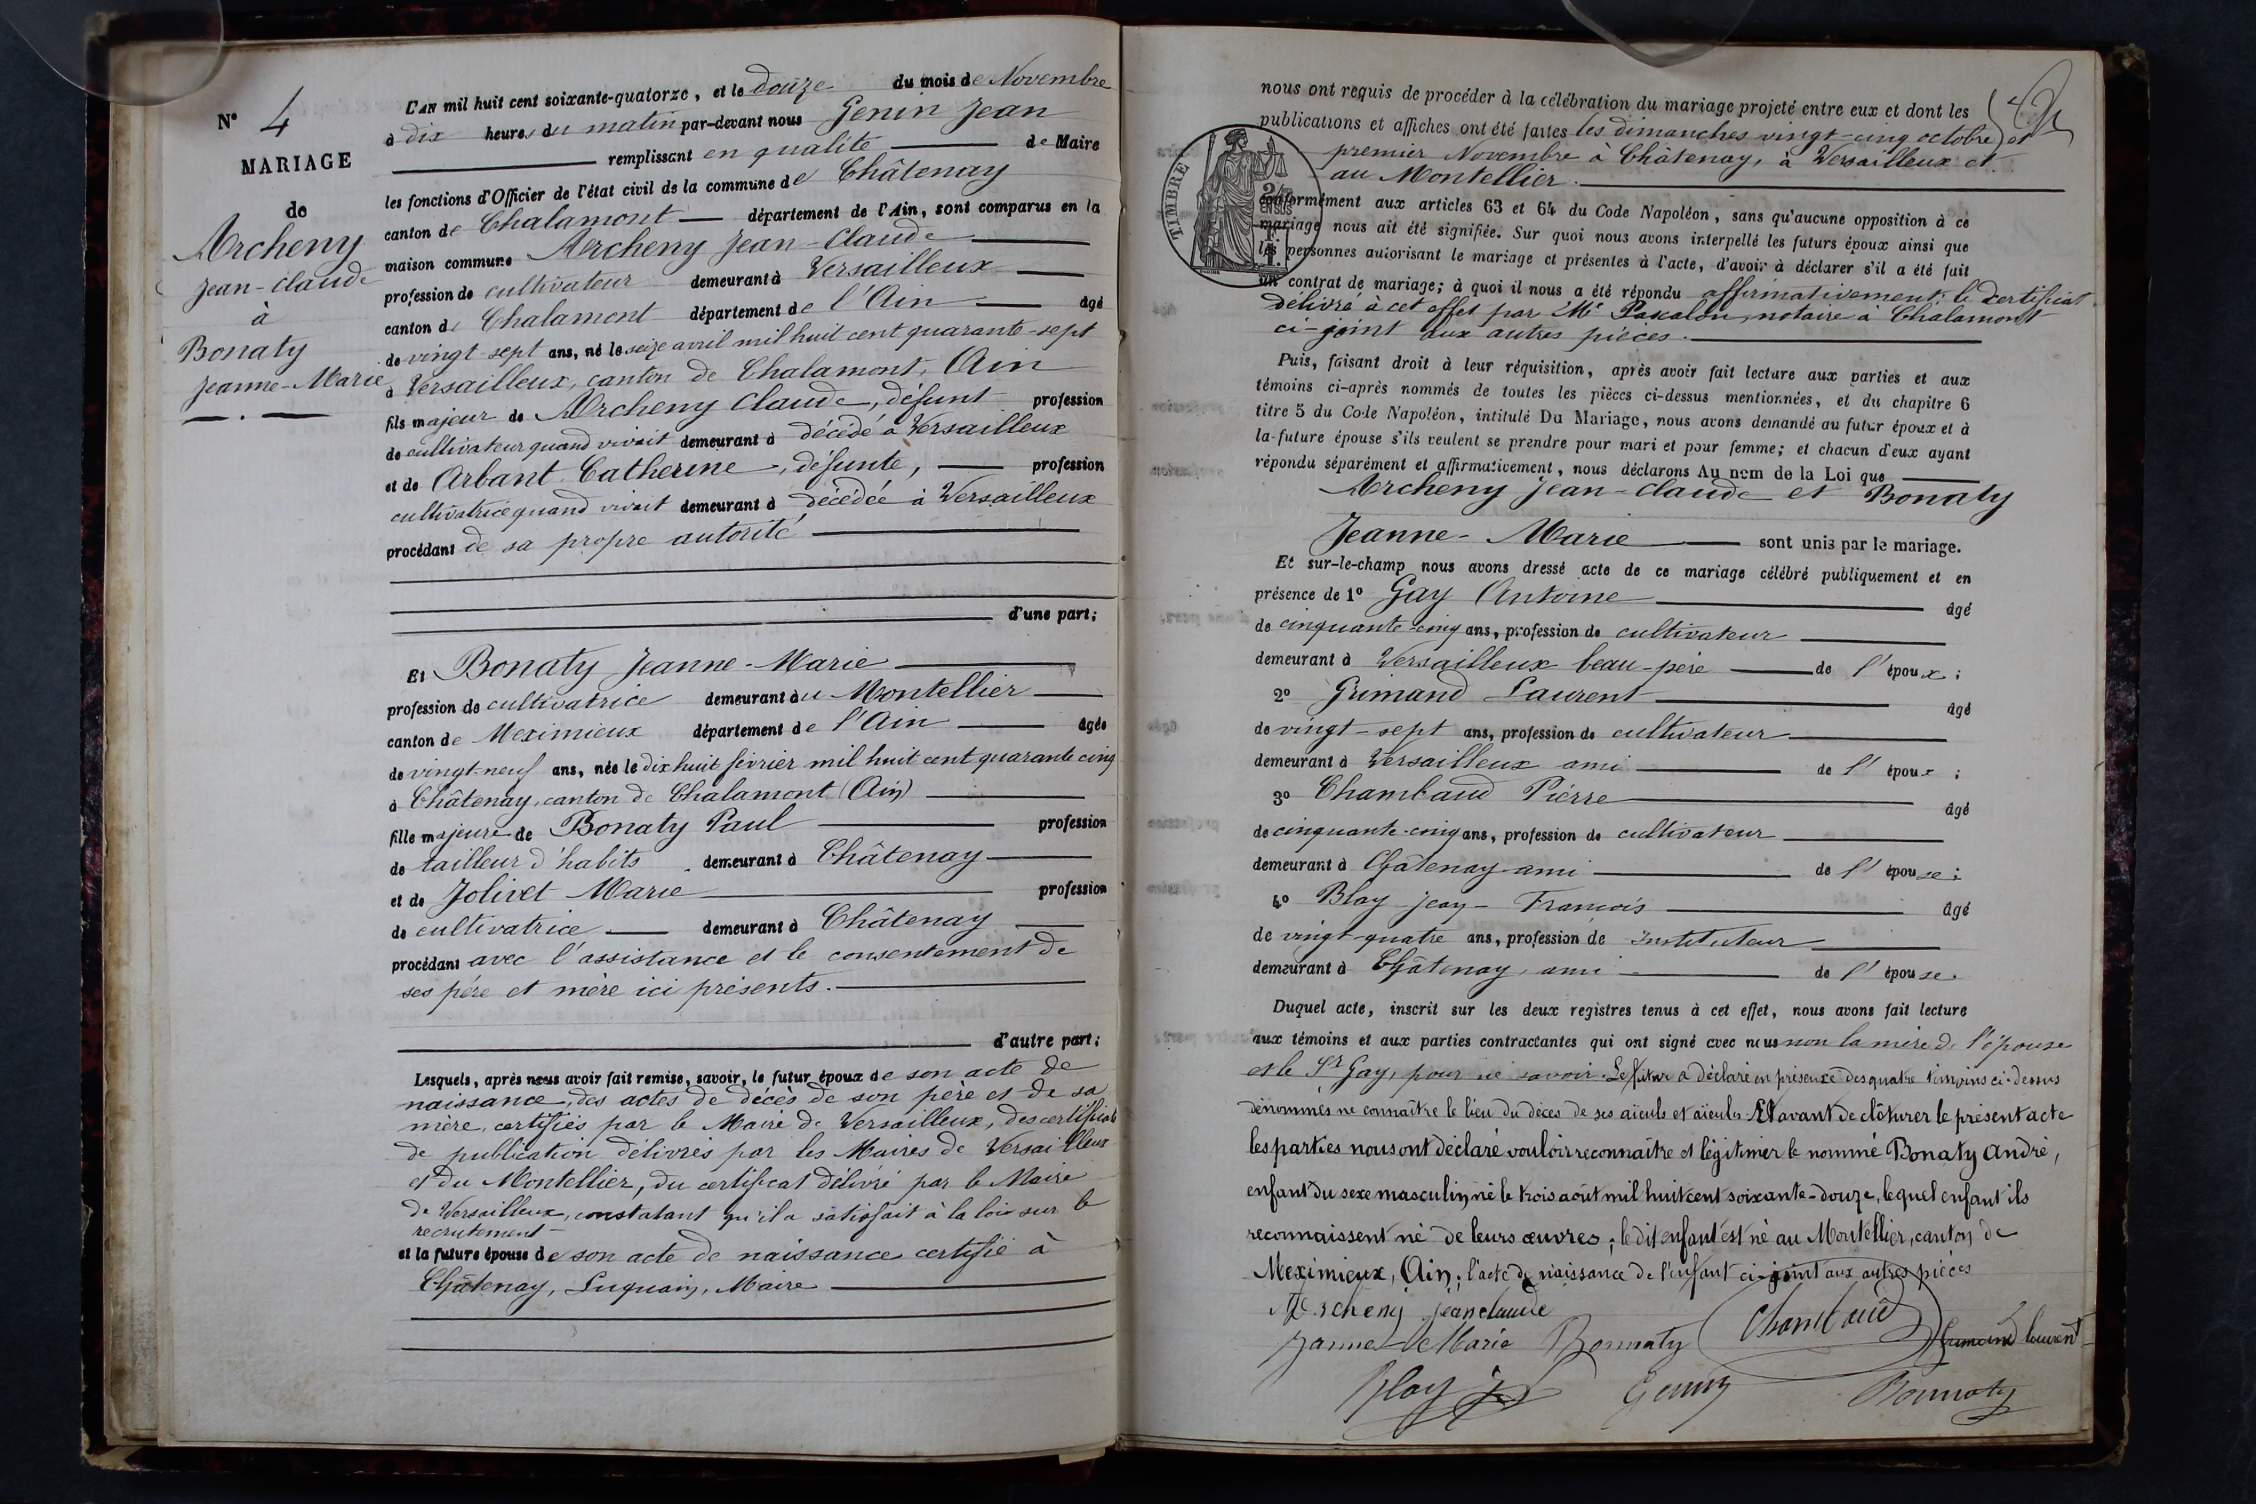 N° 4
MARIAGE
de
Archeny
Jean-Claude
à
Bonaty
Jeanne-Marie
L'AN mil huit cent soixante-quatorze, et le douze du mois de Novembre
à dix heures du matin par-devant nous Genin Jean
remplissant en qualité de Maire
les fonctions d'Officier de l'état civil de la commune de Châtenay
canton de Chalamont département de l'Ain, sont comparus en la
maison commune Archeny Jean-Claude
profession de cultivateur demeurant à Versailleux
canton de Chalamont département de l'Ain âgé
de vingt-sept ans, né le seize avril mil huit cent quarante-sept
à Versailleux, canton de Chalamont, Ain
fils majeur de Archeny Claude, défunt profession
de cultivateur quand vivait demeurant à décédé à Versailleux
et de Arbant Catherine, défunte, profession
cultivatrice quand vivait demeurant à décédée à Versailleux
procédant de sa propre autorité
d'une part;
Et Bonaty Jeanne-Marie
profession de cultivatrice demeurant àu Montellier
canton de Meximieux département de l'Ain âgée
de vingt-neuf ans, née le dix huit février mil huit cent quarante cinq
à Châtenay, canton de Chalamont (Ain)
fille majeure de Bonaty Paul profession
de tailleur d'habits demeurant à Châtenay
et de Jolivet Marie profession
de cultivatrice demeurant à Châtenay
procédant avec l'assistance et le consentement de
ses père et mère ici présents.
d'autre part;
Lesquels, après nous avoir fait remise, savoir, le futur époux de son acte de
naissance, des actes de décès de son père et de sa
mère, certifiés par le Maire de Versailleux, des certificats
de publication délivrés par les Maires de Versailleux
et du Montellier, du certificat délivré par le Maire
de Versailleux, constatant qu'il a satisfait à la loi sur le
recrutement
et la future épouse de son acte de naissance certifié à
Châtenay, Luquain, Maire
nous ont requis de procéder à la célébration du mariage projeté entre eux et dont les
publications et affiches ont été faites les dimanches vingt-cinq octobre et
premier Novembre à Châtenay, à Versailleux et
au Montellier.
TIMBRE
conformément aux articles 63 et 64 du Code Napoléon, sans qu'aucune opposition à ce
mariage nous ait été signifiée. Sur quoi nous avons interpellé les futurs époux ainsi que
les personnes autorisant le mariage et présentes à l'acte, d'avoir à déclarer s'il a été fait
un contrat de mariage; à quoi il nous a été répondu affirmativement; le certificat
délivré à cet effet par Me Paxalon, notaire à Chalamont
ci-joint aux autres pièces.
Puis, faisant droit à leur réquisition, après avoir fait lecture aux parties et aux
témoins ci-après nommés de toutes les pièces ci-dessus mentionnées, et du chapitre 6
titre 5 du Code Napoléon, intitulé Du Mariage, nous avons demandé au futur époux et à
la future épouse s'ils veulent se prendre pour mari et pour femme; et chacun d'eux ayant
répondu séparément et affirmativement, nous déclarons Au nom de la Loi que
Archeny Jean-Claude et Bonaty
Jeanne-Marie sont unis par le mariage.
Et sur-le-champ nous avons dressé acte de ce mariage célébré publiquement et en
présence de 1° Gay Antoine âgé
de cinquante-cinq ans, profession de cultivateur
demeurant à Versailleux beau-père de l'époux;
2° Grimand Laurent âgé
de vingt-sept ans, profession de cultivateur
demeurant à Versailleux ami de l'époux;
3° Chambaud Pierre âgé
de cinquante-cinq ans, profession de cultivateur
demeurant à Châtenay ami de l'épouse;
4° Blay Jean-François âgé
de vingt-quatre ans, profession de instituteur
demeurant à Châtenay, ami de l'épouse.
Duquel acte, inscrit sur les deux registres tenus à cet effet, nous avons fait lecture
aux témoins et aux parties contractantes qui ont signé avec nous non la mère de l'épouse
et le Sr Gay, pour ne savoir. Le futur a déclaré en présence des quatre témoins ci-dessus
dénommés ne connaître le lieu du décès de ses aïeuls et aïeules. Et avant de clôturer le présent acte
les parties nous ont déclaré vouloir reconnaître et légitimer le nommé Bonaty André,
enfant du sexe masculin, né le trois août mil huit cent soixante-douze, lequel enfant ils
reconnaissent né de leurs œuvres; le dit enfant est né au Montellier, canton de
Meximieux, Ain; l'acte de naissance de l'enfant ci-joint aux autres pièces
Archeny jean claude
Janne Marie Bonnaty Chambaud Grimand laurent
Blay J Genin Bonnaty